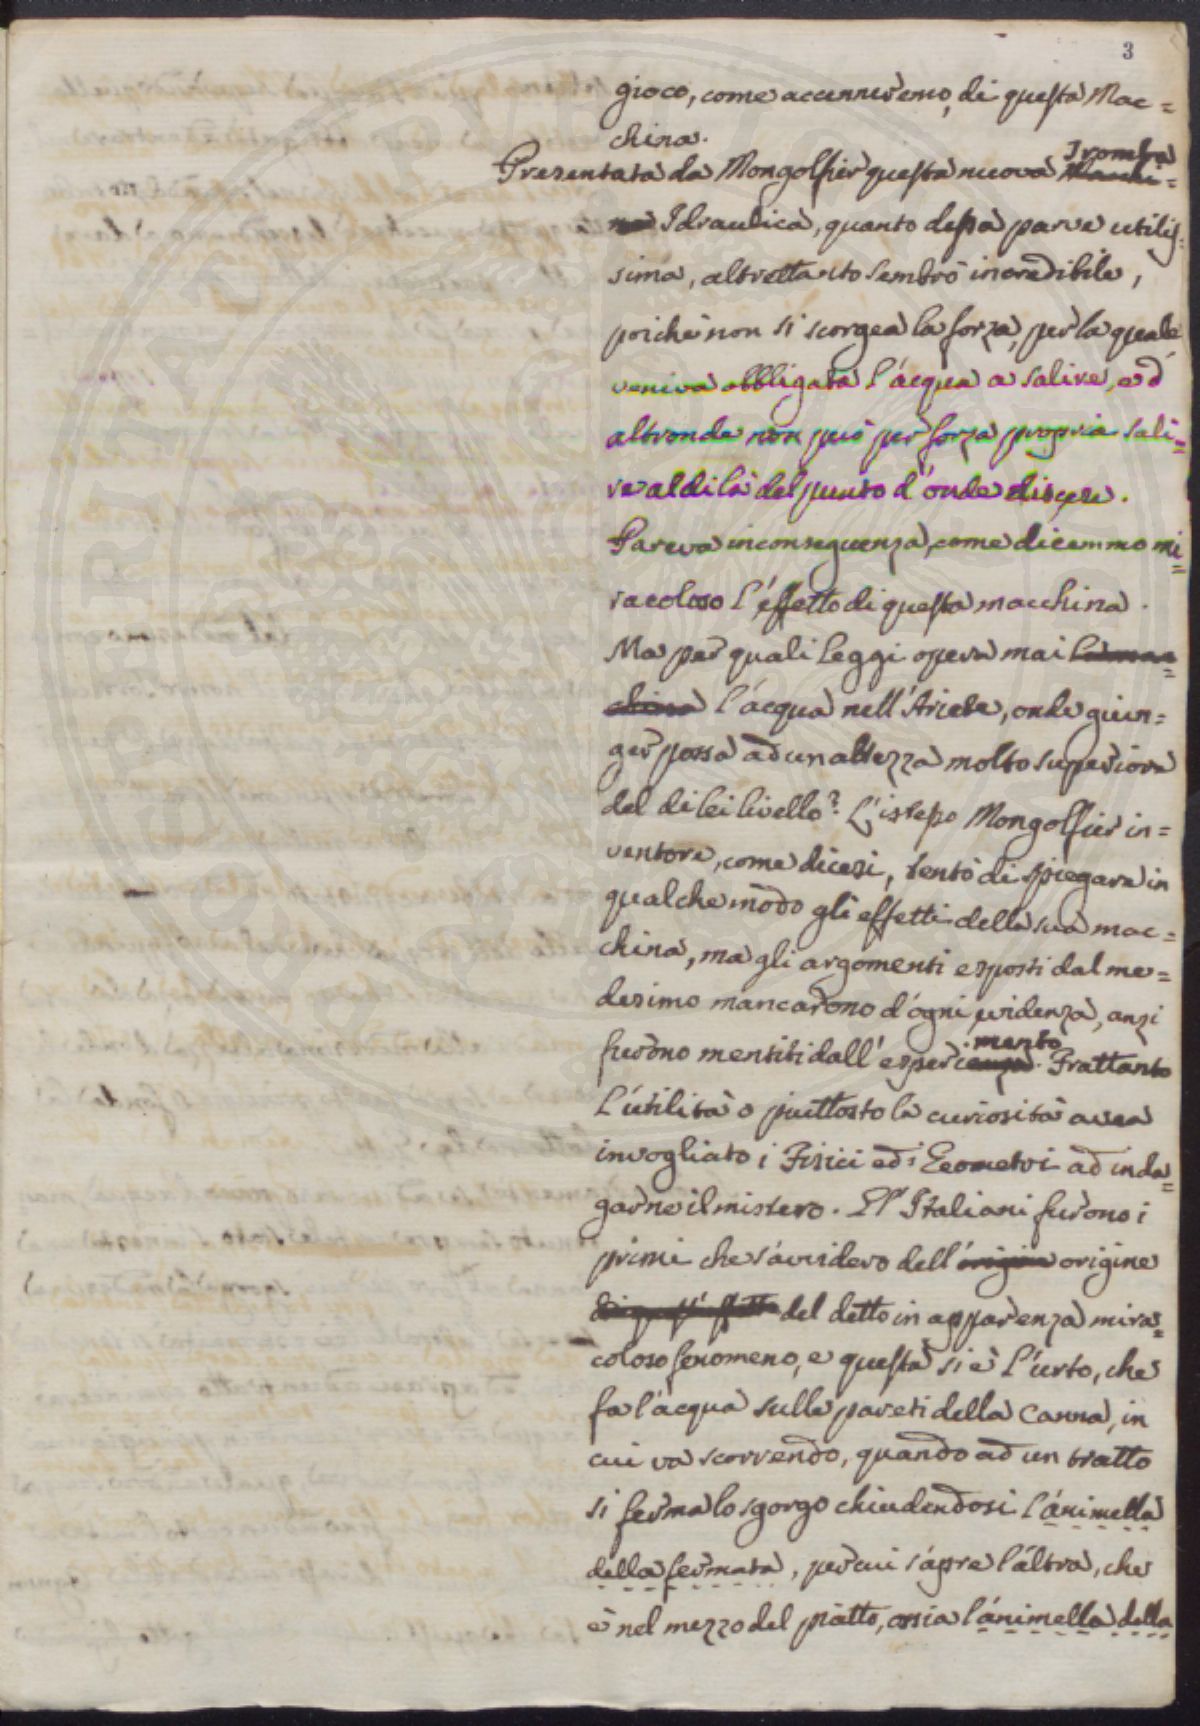 3
gioco, come accenneremo, di questa Mac=
china.
Presentata da Mongolfier questa nuova Tromba Machi=
na Idraulica, quanto dessa parve utilis=
sima, altrettanto sembrò incredibile,
poichè non si scorgea la forza, per la quale
veniva obbligata l'acqua a salire, e d'
altronde non può per forza propria sali=
re al di là del punto d'onde discese.
Pareva in conseguenza, come dicemmo mi=
racoloso l'effetto di questa macchina.
Ma per quali leggi opera mai la mac=
china l'acqua nell'Ariete, onde giun=
ger possa ad un altezza molto superiore
del di lei livello? L'istesso Mongolfier in=
ventore, come dicesi, tentò di spiegare in
qualche modo gli effetti della sua mac=
china, ma gli argomenti esposti dal me=
desimo mancarono d'ogni evidenza, anzi
furono mentiti dall'esperienza.mento Frattanto
l'utilità o piuttosto la curiosità avea
invogliato i Fisici ed i Geometri ad inda=
garne il mistero. Gl'Italiani furono i
primi che s'avvidero dell'origine origine
di quest'effetto del detto in apparenza mira=
coloso fenomeno, e questa si è l'urto, che
fa l'acqua sulle pareti della Canna, in
cui va scorrendo, quando ad un tratto
si ferma lo sgorgo chiudendosi l'animella
della fermata, per cui s'apre l'altra, che
è nel mezzo del piatto, ossia l'animella della